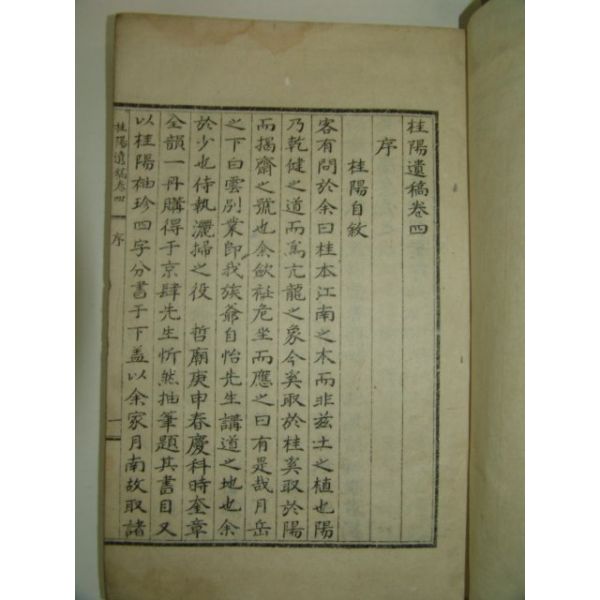 桂陽遺稿卷四
序
桂陽自敘
客有問於余曰桂本江南之木而非玆土之植也陽
乃乾健之道而爲亢龍之象今奚取於桂奚取於陽
而揭齋之號也余斂袵危坐而應之曰有是哉月岳
之下白雲別業即我族爺自怡先生講道之地也余
於少也侍執灑掃之役 哲廟庚申春慶科時奎章
全韻一冊購得于京肆先生忻然抽筆題其書目又
以桂陽袖珍四字分書于下盖以余家月南故取諸
桂陽遺稿卷四 序 一